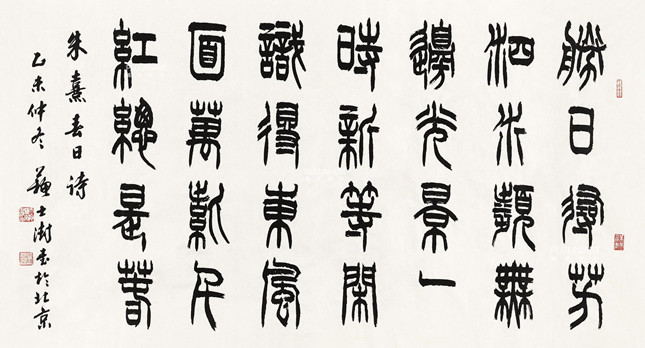 勝日尋芳
泗水瀕無
邊光景一
時新等閑
識得東風
面萬紫千
紅總是春
朱熹春日诗
乙未仲冬蘇士澍書於北京